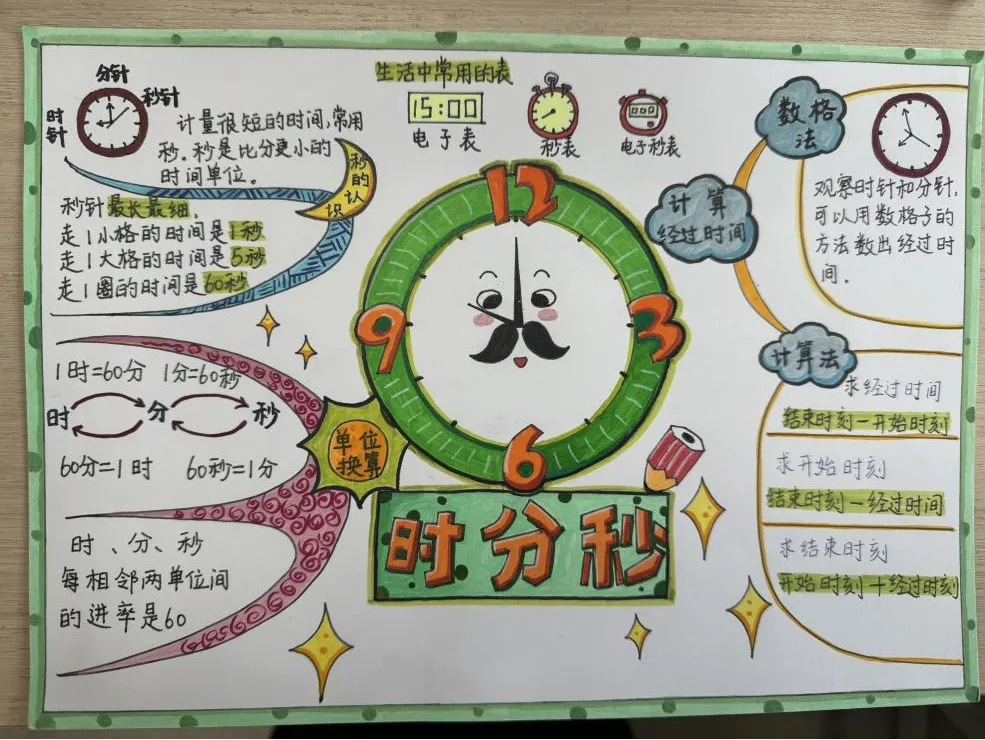 生活中常用的表
15:00
电子表
秒表
电子秒表
分针
秒针
时
针
计量很短的时间,常用
秒.秒是比分更小的
时间单位。
秒的认识
秒针最长最细,
走1小格的时间是1秒
走1大格的时间是5秒
走1圈的时间是60秒
1时=60分 1分=60秒
时 分 秒
60分=1时 60秒=1分
单位
换算
时、分、秒
每相邻两单位间
的进率是60
12
3
6
9
时分秒
计算
经过时间
数格
法
观察时针和分针,
可以用数格子的
方法数出经过时
间.
计算法
求经过时间
结束时刻-开始时刻
求开始时刻
结束时刻-经过时间
求结束时刻
开始时刻+经过时刻